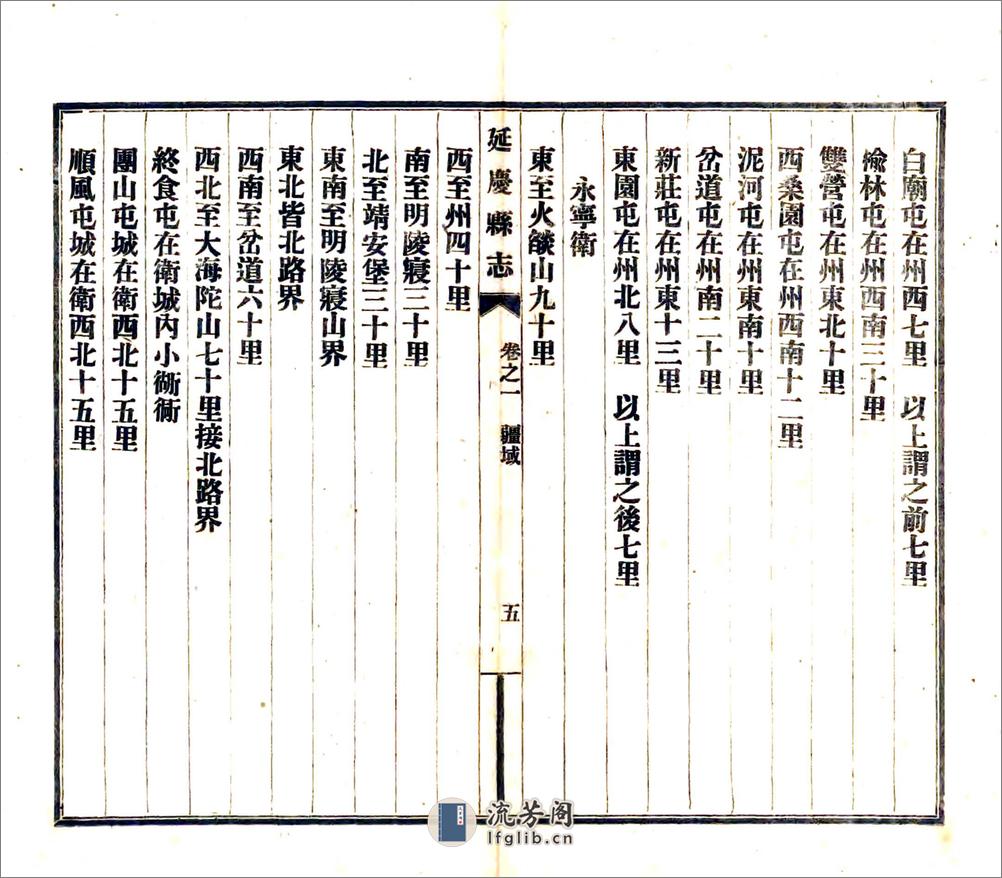 白廟屯在州西七里　以上謂之前七里
榆林屯在州西南三十里
雙營屯在州東北十里
西桑園屯在州西南十二里
泥河屯在州東南十里
岔道屯在州南二十里
新莊屯在州東十三里
東園屯在州北八里　以上謂之後七里
永寧衛
東至火燄山九十里
延慶縣志
卷之一　疆域
五
西至州四十里
南至明陵寢三十里
北至靖安堡三十里
東南至明陵寢山界
東北皆北路界
西南至岔道六十里
西北至大海陀山七十里接北路界
終食屯在衛城內小衚衕
團山屯城在衛西北十五里
順風屯城在衛西北十五里
流芳阁
lfglib.cn